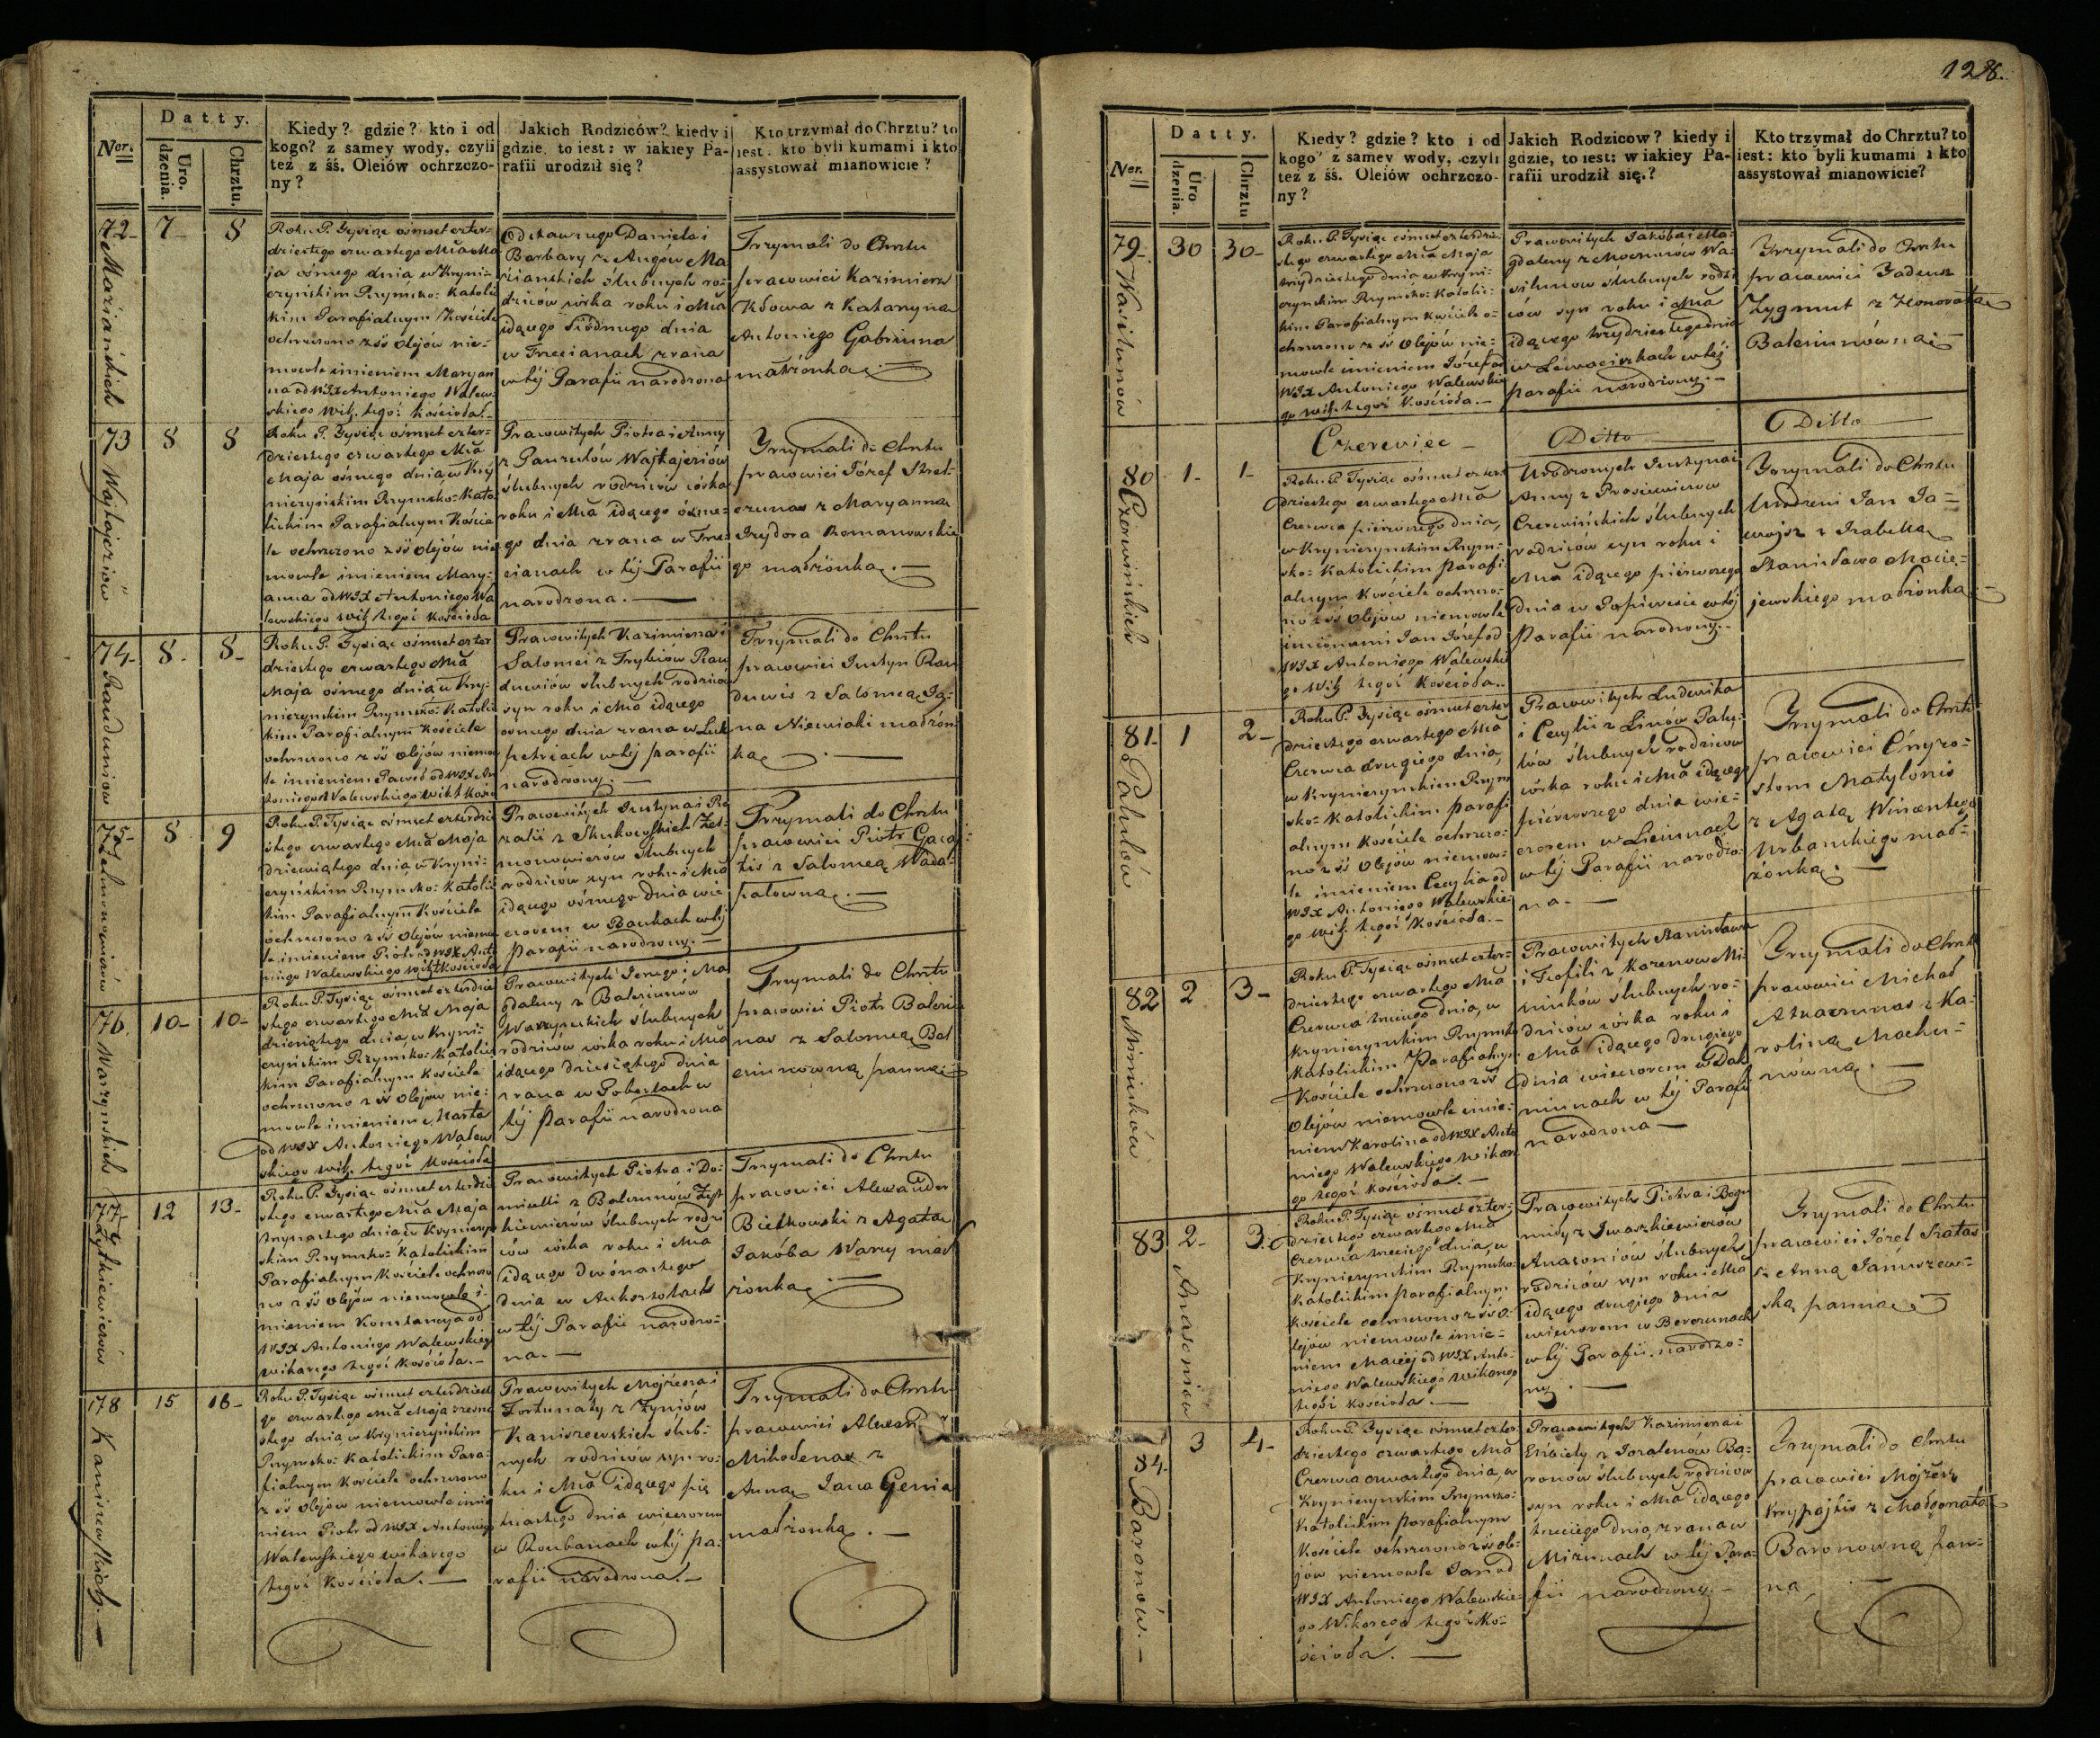 128.
Datty.
Ner.
Uro.
dzenia.
Chrztu.
Kiedy? gdzie? kto i od
kogo? z samey wody, czyli
też z śś. Oleiów ochrzczo-
ny?
Jakich Rodziców? kiedy i
gdzie, to iest: w iakiey Pa-
rafii urodził się?
Kto trzymał do Chrztu? to
iest: kto byli kumami i kto
assystował mianowicie?
72 Mariańskich
7
8
Roku P. Tysiąc ośmset czter-
dziestego czwartego Mca Ma
ja osmego dnia w Kryni-
czyńskim Rzymsko: Katolic
kim Parafialnym Kościele
ochrzczono z śś olejów nie-
mowle imieniem Maryan
na od WJX Antoniego Walew-
skiego Wik. tegoż Kościoła.
Barbary z
rianskich ślubnych ro-
dziców córka roku i Mca
idącego siódmego dnia
w Trecianach zrana
w tej Parafii narodzona
Trzymali do Chrztu
pracowici Kazimierz
z Kataryną
Antoniego
małżonką
73 Wajtajeriów
8
8
Roku P. Tysiąc ośmset czter-
dziestego czwartego Mca
Maja ośmego dnia w Kry
niczyńskim Rzymsko: Kato-
lickim Parafialnym Koście
le ochrzczono z śś olejów nie
mowle imieniem Mary-
anna od WJX Antoniego Wa
lewskiego Wik tegoż Kościoła
Pracowitych Piotra i Anny
z Wajtajeriów
ślubnych rodziców córka
roku i Mca idącego ósme-
go dnia zrana w Tre-
cianach w tej Parafii
narodzona.
Trzymali do Chrztu
pracowici Józef
z Maryanną
Izydora Romanowskie
go małżonką.
74 Rauduniów
8
8
Roku P. Tysiąc ośmset czter
dziestego czwartego Mca
Maja ośmego dnia w Kry-
niczynskim Rzymsko: Katolic
kim Parafialnym Kościele
ochrzczono z śś olejów niemow
le imieniem Paweł od WJX An
toniego Walewskiego Wik t Kości
Pracowitych Kazimierza i
Salomei z
ślubnych rodziców
syn roku i Mca idącego
osmego dnia zrana w
w tej parafii
narodzony.
Trzymali do Chrztu
pracowici Justyn Rau
duwis z Salomeą Ja-
na małżon
ką
75
8
9
Roku P. Tysiąc ośmset czterdzie
stego czwartego Mca Maja
dziewiątego dnia w Kryni-
czyńskim Rzymsko: Katolic
kim Parafialnym Kościele
ochrzczono z śś olejów niemow
le imieniem Piotr od WJX Anto
niego Walewskiego Wik t Kościoła
Pracowitych Justyna i Ro
zalii z
ślubnych
rodziców syn roku i Mca
idącego ósmego dnia wie
czorem w Bankach w tej
Parafii narodzony.
Trzymali do Chrztu
pracowici Piotr
z Salomeą
76. Warzynskich
10
10
Roku P. Tysiąc ośmset czterdzie
stego czwartego Mca Maja
dziesiątego dnia w Kryni-
czyńskim Rzymsko: Katolic
kim Parafialnym Kościele
ochrzczono z śś olejów nie-
mowle imieniem Marta
od WJX Antoniego Walew
skiego Wik. tegoż Kościoła
Pracowitych Jerzego i Ma
gdaleny z Baleriunów
Warzynskich ślubnych
rodziców córka roku i Mca
idącego dziesiątego dnia
zrana w Pobertach w
tej Parafii narodzona
Trzymali do Chrztu
pracowici Piotr Baleriu
nas z Salomeą Bal
eriunowną panną
77 Zytkiewiczów
12
13
Roku P. Tysiąc ośmset czterdzie
stego czwartego Mca Maja
trzynastego dnia w Kryniczyń
skim Rzymsko: Katolickim
Parafialnym Kościele ochrzczo
no z śś olejów niemowle i-
mieniem Konstancya od
WJX Antoniego Walewskiego
wikarego tegoż Kościoła.
Pracowitych Piotra i Do-
micelli z Zyt
kiewiczów ślubnych rodzi
ców córka roku i Mca
idącego dwónastego
dnia w
w tej Parafii narodzo-
na.
Trzymali do Chrztu
pracowici Alexander
Bielkowski z Agatą
Jakóba małż
żonką
78 Kaniszewskich.
15
16
Roku P. Tysiąc ośmset czterdzieste
go czwartego Mca Maja szesna
stego dnia w Kryniczyńskim
Rzymsko: Katolickim Para-
fialnym Kościele ochrzczono
z śś olejów niemowle imie
niem Piotr od WJX Antoniego
Walewskiego wikarego
tegoż Kościoła.
Pracowitych Mojżesza i
Fortunaty z
Kaniszewskich ślub-
nych rodziców syn ro-
ku i Mca idącego pię
tnastego dnia wieczorem
w Roubanach w tej Pa-
rafii narodzona.
Trzymali do Chrztu
pracowici
z
Anną Jana
małżonką.
Datty.
Ner.
Uro
dzenia.
Chrztu
Kiedy? gdzie? kto i od
kogo? z samey wody, czyli
też z śś. Oleiów ochrzczo-
ny?
Jakich Rodzicow? kiedy i
gdzie, to iest: w iakiey Pa-
rafii urodził się.?
Kto trzymał do Chrztu? to
iest: kto byli kumami i kto
assystował mianowicie?
79. Wasilunów
30
30
Roku P. Tysiąc ośmset czterdzie-
stego czwartego Mca Maja
trzydziestego dnia w Kryni-
czynskim Rzymsko: Katolic-
kim Parafialnym Kościele o-
chrzczono z śś Olejów nie-
mowle imieniem Józef od
WJX Antoniego Walewskie
go wik. tegoż Kościoła.
Pracowitych Jakóba i Ma-
gdaleny z Wa-
silunow ślubnych rodzi
ców syn roku i Mca
idącego trzydziestego dnia
w w tej
parafii narodzony.
Trzymali do Chrztu
pracowici Tadeusz
Zygmut z Honoratą
Baleriunówną
Czerwiec
Ditto
Ditto
80 Czerwińskich
1
1
Roku P. Tysiąc ośmset czter
dziestego czwartego Mca
Czerwca pierwszego dnia,
w Kryniczynskim Rzym-
sko: Katolickim parafi
alnym Kościele ochrzczo-
no z śś olejów niemowle
imionami Jan Józef od
WJX Antoniego Walewskie
go Wik tegoż Kościoła..
Urodzonych Justyna i
Anny z
Czerwińskich ślubnych
rodziców syn roku i
Mca idącego pierwszego
dnia w w tej
Parafii narodzony..
Trzymali do Chrztu
Urodzeni Jan
z Izabellą
Stanisława Macie-
jewskiego małżonką
81. Palulów
1
2
Roku P. Tysiąc ośmset czter
dziestego czwartego Mca
Czerwca drugiego dnia,
w Kryniczynskim Rzym
sko: Katolickim parafi
alnym Kościele ochrzczo-
no z śś Olejów niemow-
le imieniem Cecylia od
WJX Antoniego Walewskie-
go wik. tegoż Kościoła.
Pracowitych Ludwika
i Cecylii z Linów Palu-
lów ślubnych rodziców
córka roku i Mca idącego
pierwszego dnia wie-
czorem w
w tej Parafii narodzo-
na.
Trzymali do Chrztu
pracowici Chryzo-
stom Matylonis
z Agatą Wincentego
Urbanskiego mał-
żonką.
82 Miniuków
2
3
Roku P. Tysiąc ośmset czter-
dziestego czwartego Mca
Czerwca trzeciego dnia, w
Kryniczynskim Rzymsko
Katolickim Parafialnym
Kościele ochrzczono z śś
Olejów niemowle imie-
niem Karolina od WJX Anto
niego Walewskiego wikare
go tegoż Kościoła.
Pracowitych Stanisława
i Teofili z Mi
niuków ślubnych ro-
dziców córka roku i
Mca idącego drugiego
dnia wieczorem w
w tej Parafii
narodzona
Trzymali do Chrztu
pracowici Michał
z Ka-
roliną
83 Anasoniów
2
3
Roku P. Tysiąc ośmset czter-
dziestego czwartego Mca
Czerwca trzeciego dnia, w
Kryniczynskim Rzymsko:
Katolickim parafialnym
Kościele ochrzczono z śś o-
lejów niemowle imie-
niem Maciej od WJX Anto-
niego Walewskiego wikarego
tegoż Kościoła.
Pracowitych Piotra i Bogu
miły z Iwaszkiewiczów
Anasoniów ślubnych
rodziców syn roku i Mca
idącego drugiego dnia
wieczorem w
w tej Parafii narodzo-
ny.
Trzymali do Chrztu
pracowici Józef
z Anną Januszew-
ską panną
84. Baronów.
3
4
Roku P. Tysiąc ośmset czter
dziestego czwartego Mca
Czerwca czwartego dnia, w
Kryniczynskim Rzymsko:
Katolickim parafialnym
Kościele ochrzczono z śś ole-
jów niemowle Jan od
WJX Antoniego Walewskie-
go Wikarego tegoż Ko-
ścioła.
Pracowitych Kazimierza i
Elżbiety z Ba-
ronów ślubnych rodziców
syn roku i Mca idącego
trzeciego dnia, zrana w
Mizunach w tej Para-
fii narodzony.
Trzymali do Chrztu
pracowici Mojżesz
z Małgorzatą
Baronowną pan-
ną